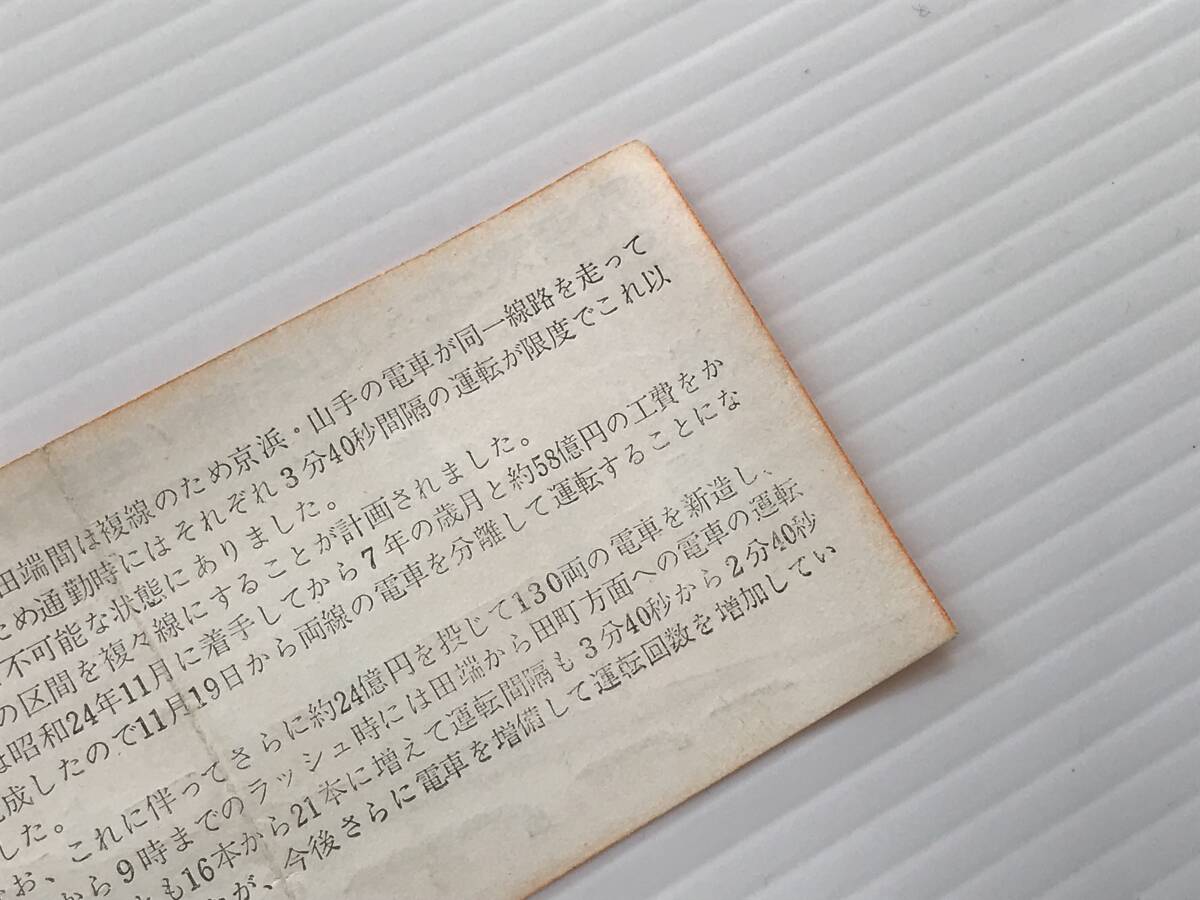 田端間は複線のため京浜・山手の電車が同一線路を走って
ため通勤時にはそれぞれ3分40秒間隔の運転が限度でこれ以
不可能な状態にありました。
の区間を複々線にすることが計画されました。
は昭和24年11月に着手してから7年の歳月と約58億円の工費をか
成したので11月19日から両線の電車を分離して運転することにな
した。
お、これに伴ってさらに約24億円を投じて130両の電車を新造し、
から9時までのラッシュ時には田端から田町方面への電車の運転
も16本から21本に増えて運転間隔も3分40秒から2分40秒
が、今後さらに電車を増備して運転回数を増加してい